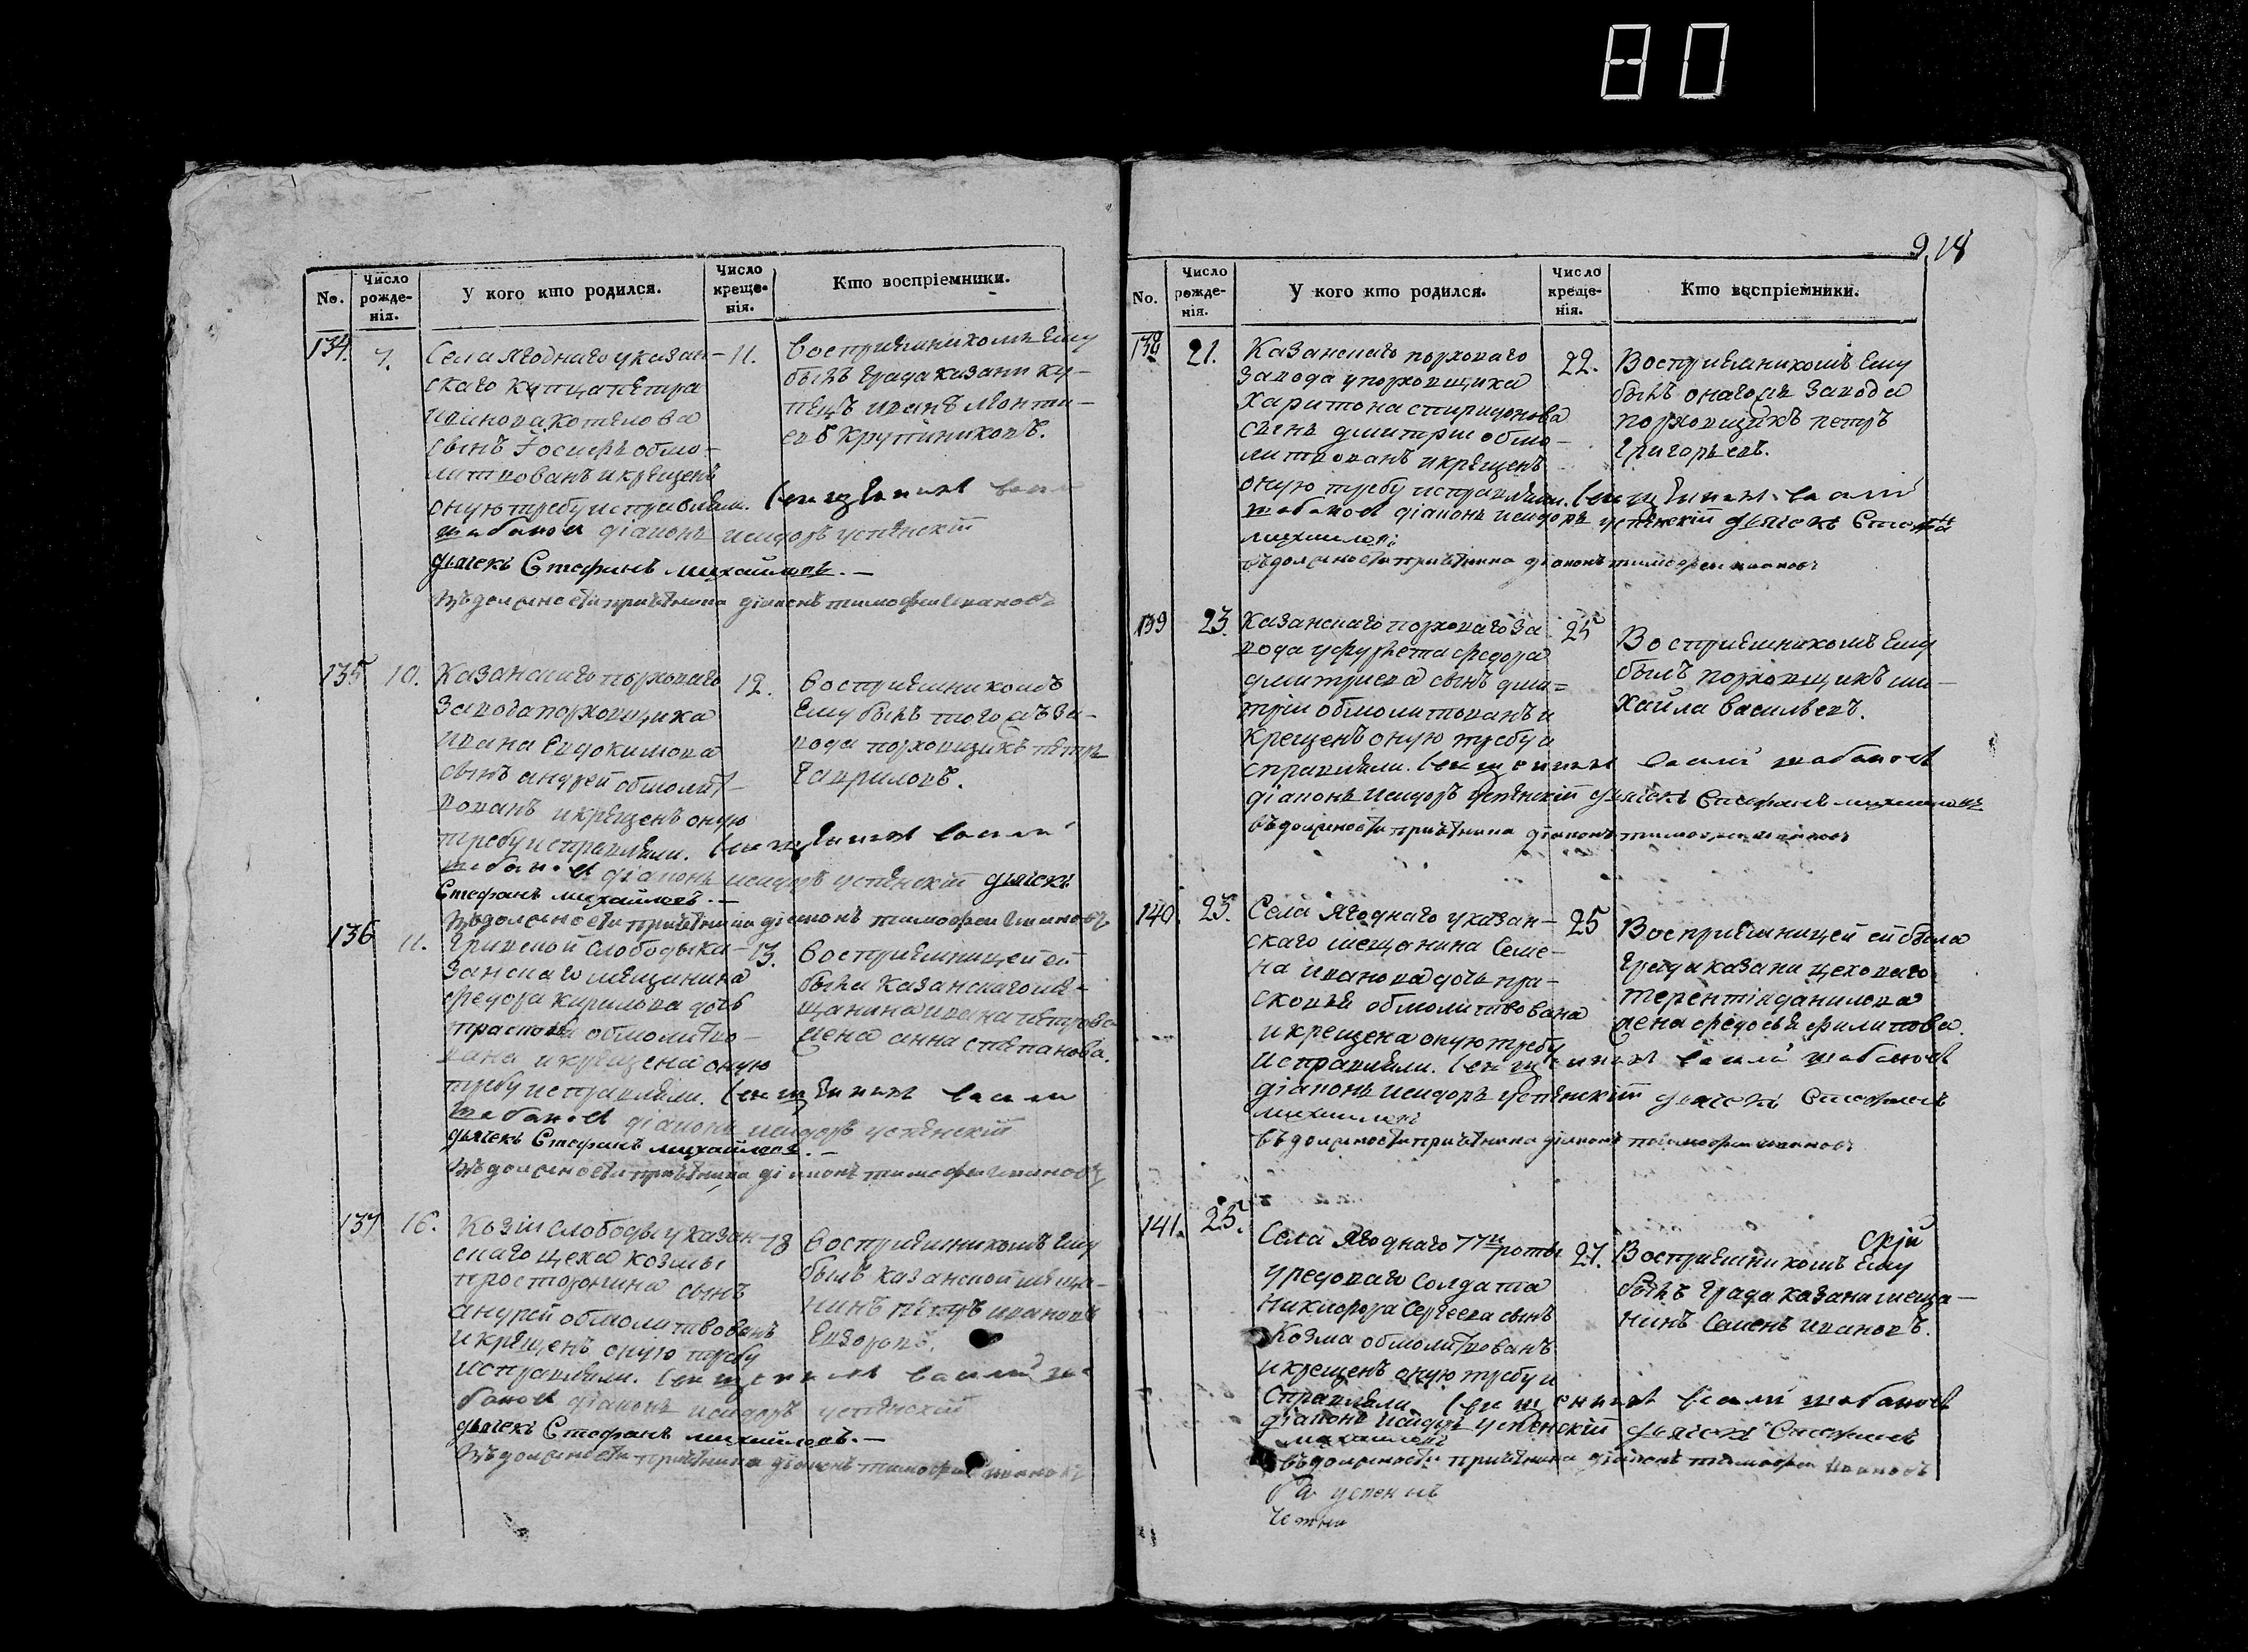 80
No.
Число рожде-нія.
У кого кто родился.
Число креще-нія.
Кто воспріемники.
134.
7.
Села Ягоднаго у казан-
скаго купца петра
иванова котелова
сынъ Іосифъ обмо-
литвованъ и крещенъ
оную требу исправляли. Священникъ васили
шабановъ діаконъ исидоръ успенскій
дьячекъ Стефанъ михайловъ. —
Въ должности причетника діаконъ тимофей ивановъ
11.
Воспріемникомъ ему
былъ града казани ку-
пецъ иванъ леонти-
евъ крупениковъ.
135
10.
Казанскаго порховаго
завода порховщика
ивана евдокимова
сынъ андрей обмолит-
вованъ и крещенъ оную
требу исправляли. Священникъ василій
шабановъ діаконъ исидоръ успенскій дьячекъ
Стефанъ михайловъ. —
Въ должности причетника діаконъ тимофей ивановъ
12.
воспріемникомъ
ему былъ тогожъ за-
вода порховщикъ петръ
гавриловъ.
136
11.
Гривской слободы ка-
занскаго мещанина
федора кирилова дочь
праскова обмолитво-
вана и крещена оную
требу исправляли. Священникъ васили
шабановъ діаконъ исидоръ успенскій
дьячекъ Стефанъ михайловъ. —
Въ должности причетника діаконъ тимофей ивановъ
13.
воспріемницей ей
была казанскаго ме-
щанина ивана петрова
жена анна степанова.
137
16.
Козіи слободы у казан-
скаго цеха козмы
просторонина сынъ
андрей обмолитвованъ
и крещенъ оную требу
исправляли. Священникъ василій ша
бановъ діаконъ исидоръ успенскій
дьячекъ Стефанъ михайловъ. —
Въ должности причетника діаконъ тимофей ивановъ
18
воспріемникомъ ему
былъ казанской меща-
нинъ петръ ивановъ
No.
Число рожде-нія.
У кого кто родился.
Число креще-нія.
Кто воспріемники.
138
21.
Казанскаго порховаго
завода у порховщика
харитона спиридонова
сынъ дмитрии обмо-
литвованъ и крещенъ
оную требу исправляли. Священникъ васили
шабановъ діаконъ исидоръ успенскій дьячекъ Стефанъ
михаиловъ
въ должности причетника діаконъ тимофеи ивановъ
22.
Воспріемникомъ ему
былъ онагожъ завода
порховщикъ петръ
григорьевъ.
139
23.
Казанскаго порховаго за-
вода у фурлета федора
дмитриева сынъ дми=
трій обмолитвованъ и
крещенъ оную требу и
справляли. Священникъ васили шабановъ
діаконъ исидоръ успенскій дьячекъ Стефанъ михаиловъ
въ должности причетника діаконъ тимофеи ивановъ
25
Воспріемникомъ ему
былъ порховщикъ ми-
хайла васильевъ.
140.
23.
Села Ягоднаго у казан-
скаго мещанина Семе-
на иванова дочь пра-
сковья обмолитвована
и крещена оную требу
исправляли. Священникъ васили шабановъ
діаконъ исидоръ успенскій дьячекъ Стефанъ
михаиловъ
въ должности причетника діаконъ тимофеи ивановъ
25
Воспріемницей ей была
града казани цеховаго
терентія данилова
жена федосья филипова.
141.
25.
Села Ягоднаго 77й роты
у рядоваго солдата
никифора Сергеева сынъ
Козма обмолитвованъ
и крещенъ оную требу и
справляли. Священникъ васили шабановъ
діаконъ исидоръ успенскій дьячекъ Стефанъ
михаиловъ
въ должности причетника діаконъ тимофеи ивановъ
27.
Воспріемникомъ ему
былъ града казани меща-
нинъ Семенъ ивановъ.